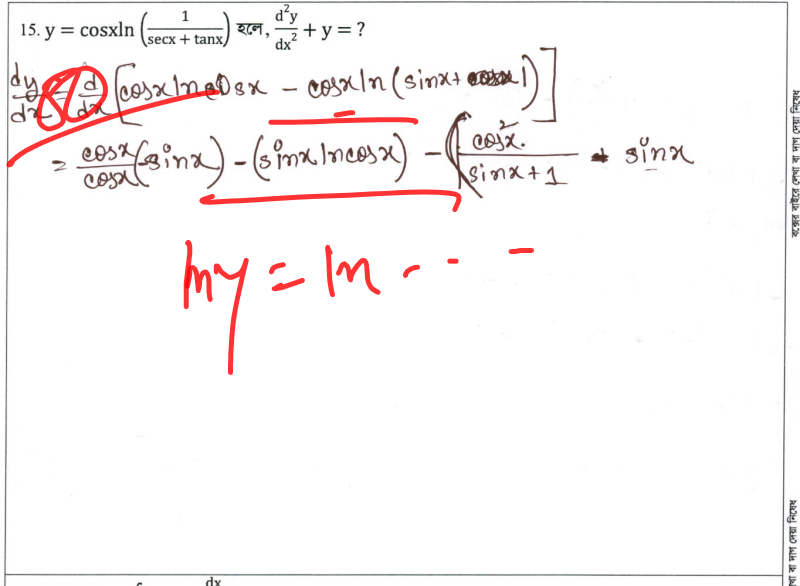 15. y = cosxln (1/(secx + tanx)) হলে, d²y/dx² + y = ?
dy/dx = d/dx [cosx ln cosx - cosx ln (sinx + 1)]
= cosx/cosx (-sinx) - (sinx ln cosx) - (cos²x/(sinx + 1) + sinx
ln y = ln - - -
বক্সের বাইরে লেখা বা দাগ দেয়া নিষেধ
বা দাগ দেয়া নিষেধ
dx